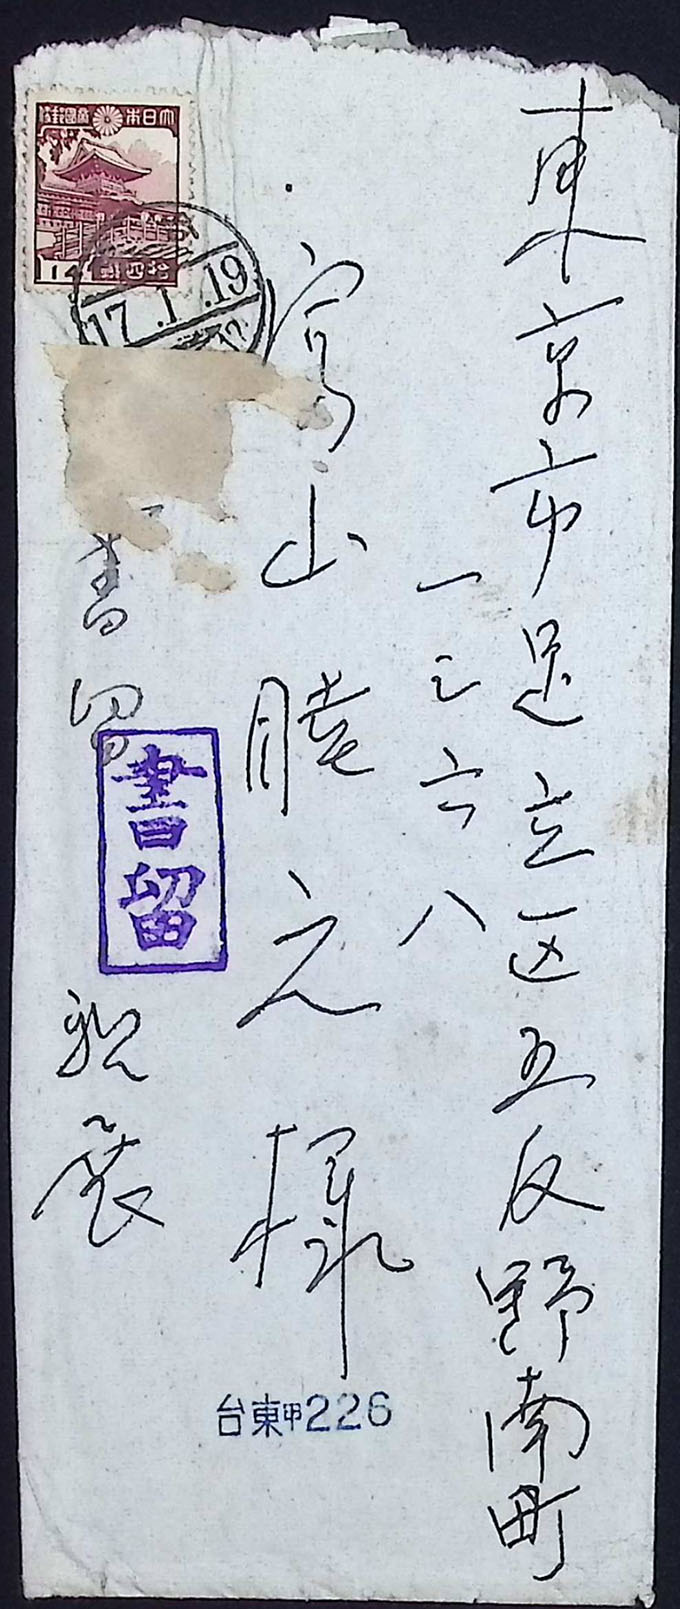 東京市足立区五反野南町
一三六八
山睦之様
書留 親展
書留
台東甲226
大日本帝國郵便
拾四銭
14
17.1.19